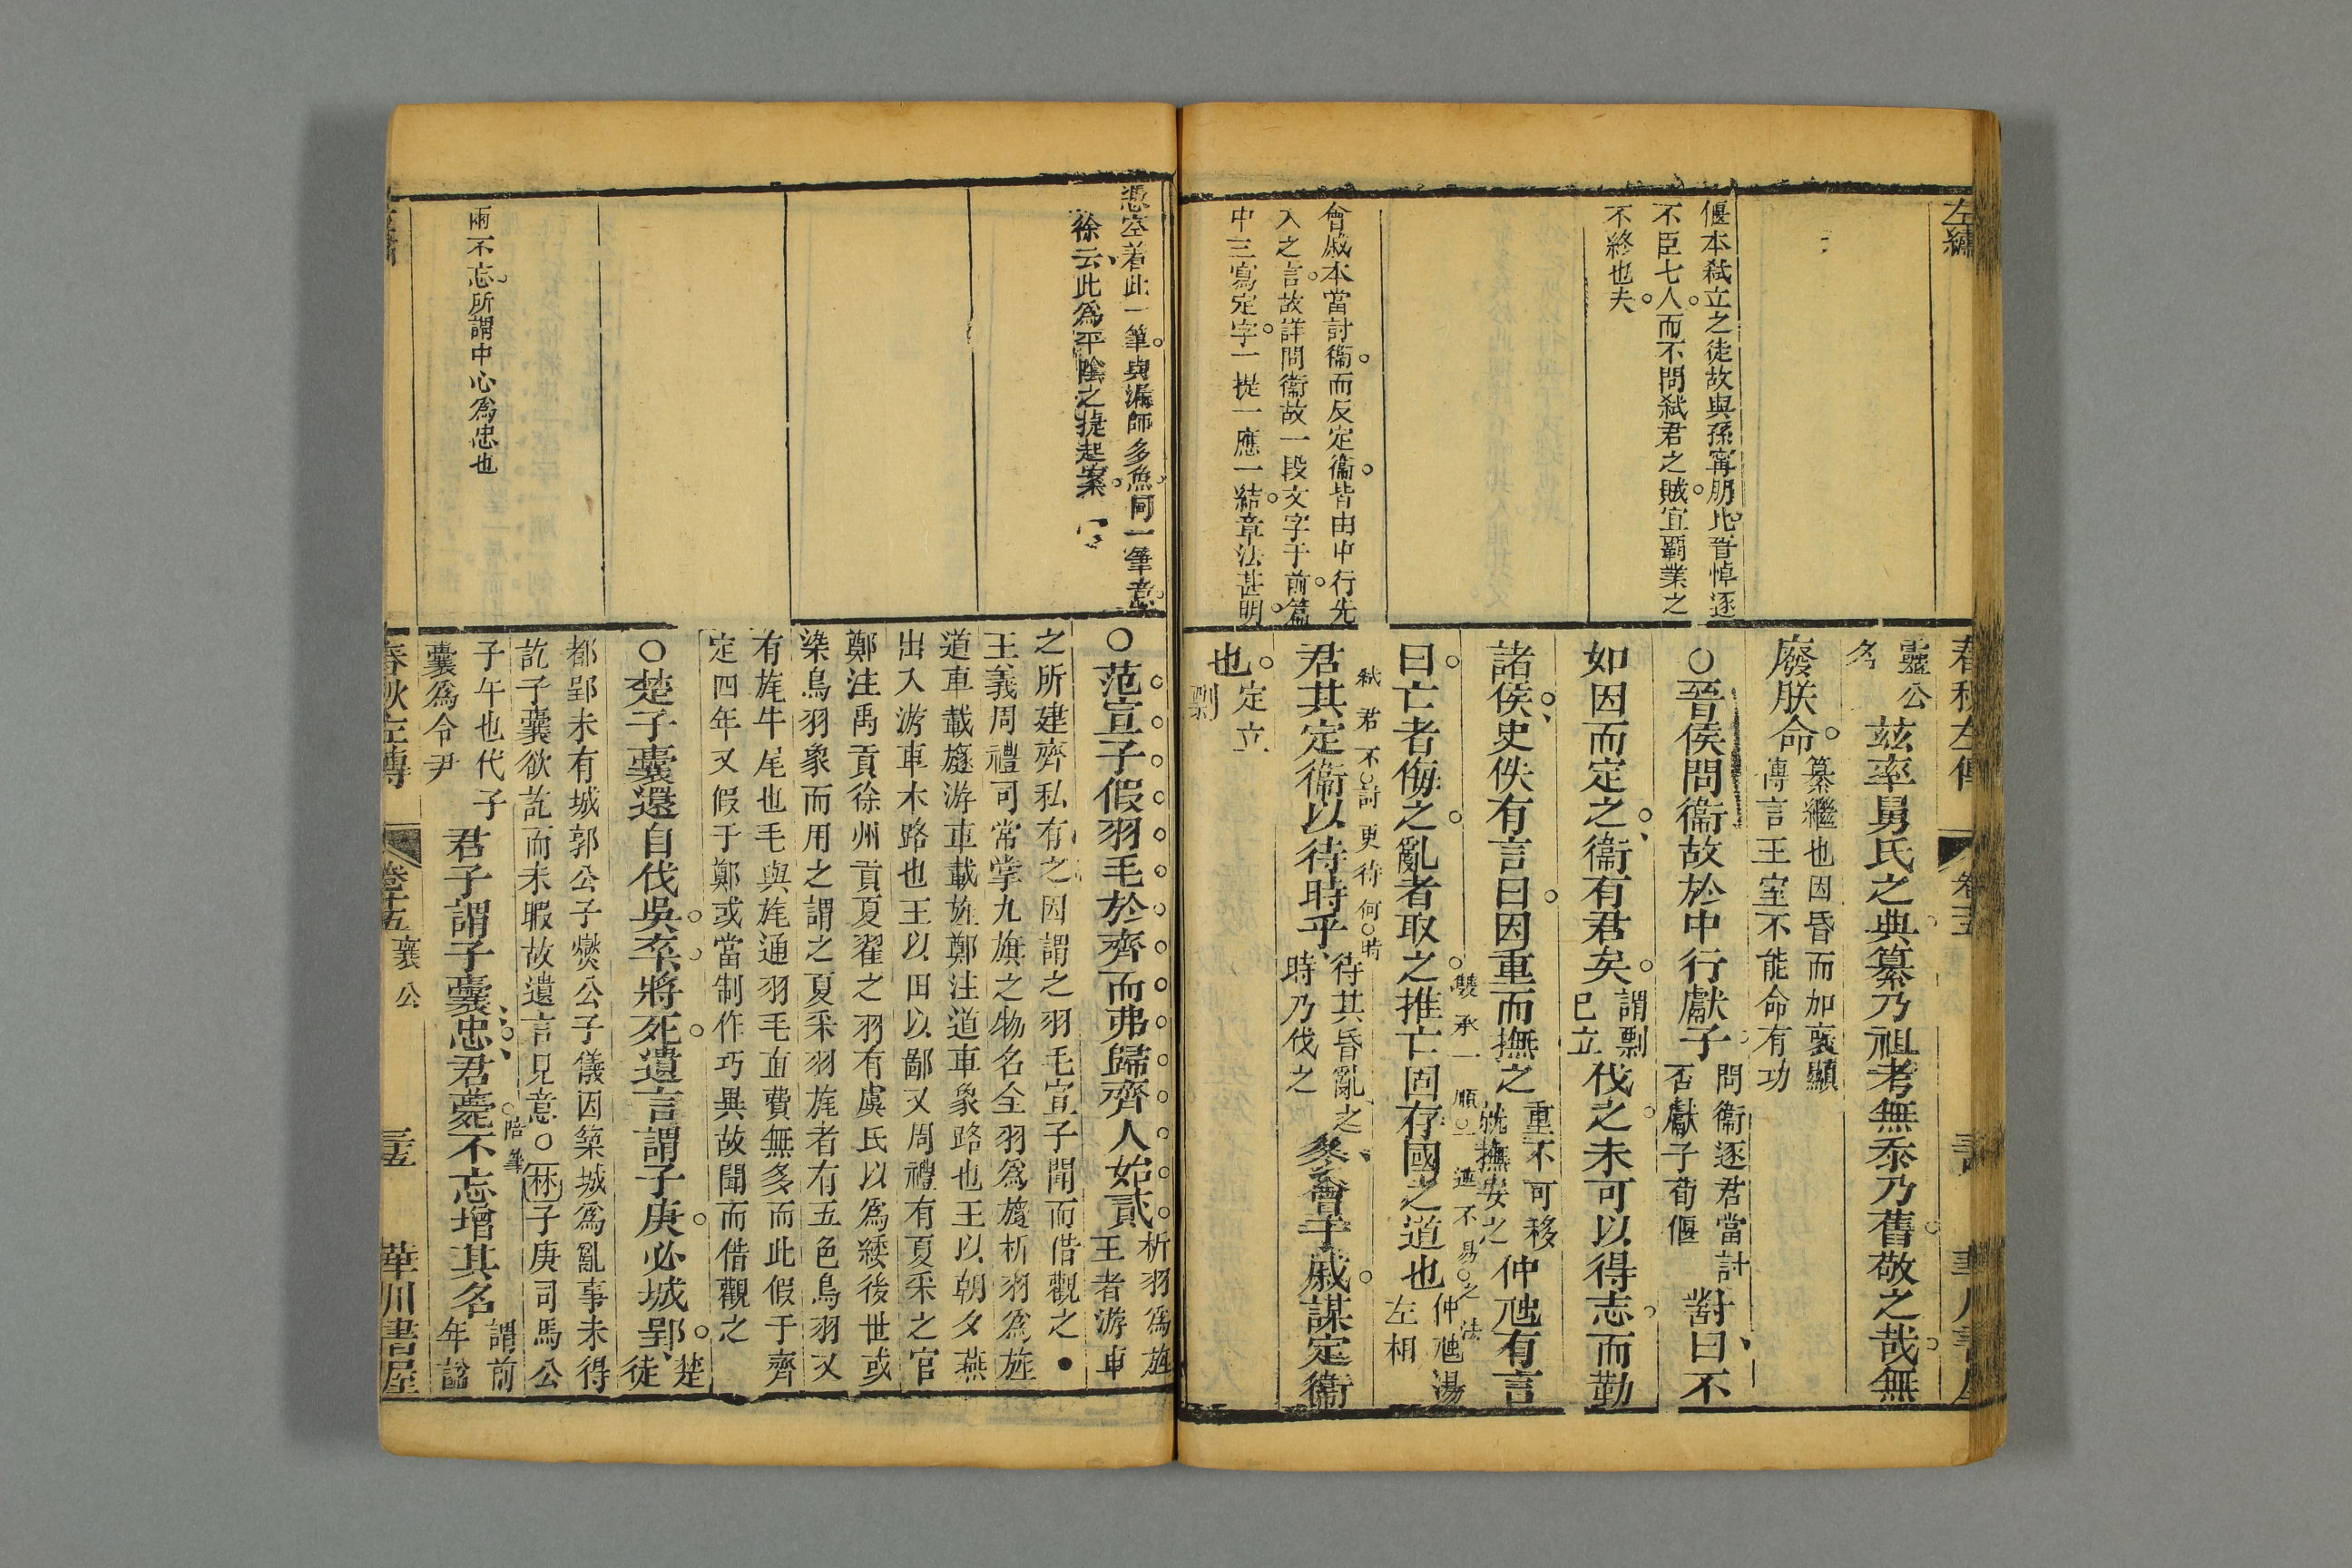 左繡
春秋左傳
卷十五
華川書屋
偃本弒立之徒故與孫甯朋比晉悼逐
不臣七人而不問弒君之賊宜霸業之
不終也夫
會戚本當討衞而反定衞皆由中行先
入之言故詳問衞故一段文字于前篇
中三寫定字一提一應一結章法甚明
靈公
名
茲率舅氏之典纂乃祖考無忝乃舊敬之哉無
廢朕命
纂繼也因昏而加褒顯
傳言王室不能命有功
○晉侯問衞故於中行獻子
問衞逐君當討
否獻子荀偃
對曰不
如因而定之衞有君矣
謂剽
已立
伐之未可以得志而勤
諸侯史佚有言曰因重而撫之
重不可移
就撫安之
仲虺有言
曰亡者侮之亂者取之推亡固存國之道也
仲虺湯
左相
雙承一順一進不易之法
君其定衞以待時乎
待其昏亂之
時乃伐之
弒君不討更待何時
冬會于戚謀定衞
也
定立
剽
憑空着此一筆與漏師多魚同一筆意
徐云此為平陰之提起案
○范宣子假羽毛於齊而弗歸齊人始貳
析羽為旌
王者游車
之所建齊私有之因謂之羽毛宣子聞而借觀之●
王義周禮司常掌九旗之物名全羽為旞析羽為旌
道車載旞游車載旌鄭注道車象路也王以朝夕燕
出入游車木路也王以田以鄙又周禮有夏采之官
鄭注禹貢徐州貢夏翟之羽有虞氏以為緌後世或
染鳥羽象而用之謂之夏采羽旄者有五色鳥羽又
有旄牛尾也毛與旄通羽毛直費無多而此假于齊
定四年又假于鄭或當制作巧異故聞而借觀之
○楚子囊還自伐吳卒將死遺言謂子庚必城郢
楚
徒
都郢未有城郭公子燮公子儀因築城為亂事未得
訖子囊欲訖而未暇故遺言見意○林子庚司馬公
子午也代子
囊為令尹
君子謂子囊忠君薨不忘增其名
謂前
年諡
陪筆
兩不忘所謂中心為忠也
春秋左傳
卷十五
襄公
三五
華川書屋